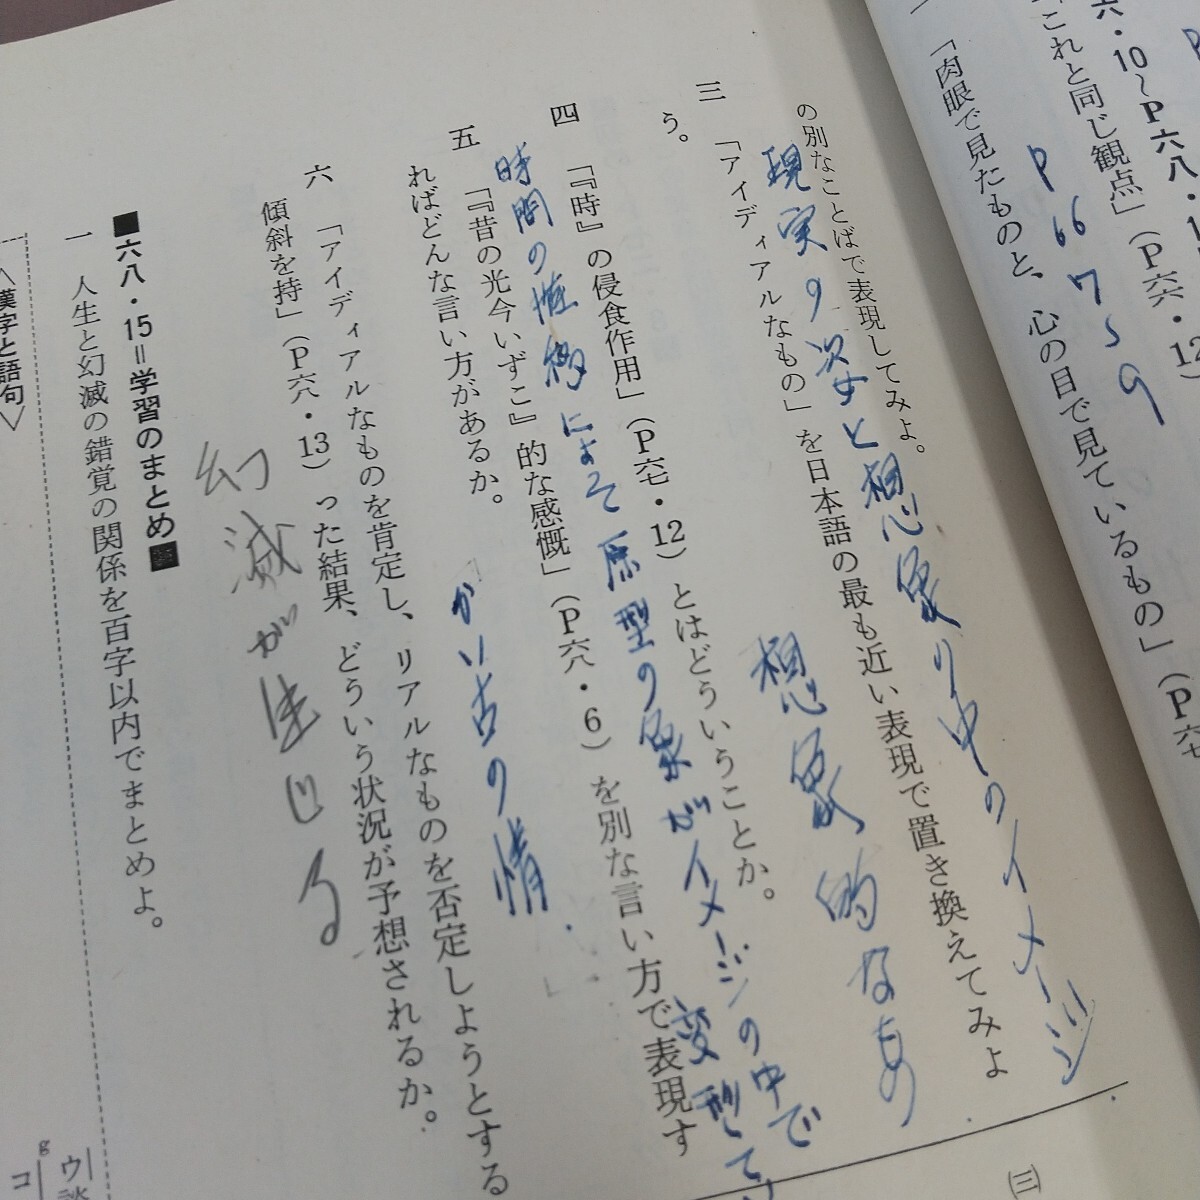 六・10〜P六八・1
「これと同じ観点」（P六六・12）
P 66 7〜9
一 「肉眼で見たものと、心の目で見ているもの」（P六七
の別なことばで表現してみよ。
現実の姿と想像の中のイメージ
三 「アイディアルなもの」を日本語の最も近い表現で置き換えてみよ
う。
想像的なもの
四 「『時』の侵食作用」（P六七・12）とはどういうことか。
時間の推移によって原型の象がイメージの中で
変型て
五 「『昔の光今いずこ』的な感慨」（P六八・6）を別な言い方で表現す
ればどんな言い方があるか。
かい古の情
六 「アイディアルなものを肯定し、リアルなものを否定しようとする
傾斜を持」（P六八・13）った結果、どういう状況が予想されるか。
幻滅が生じる
■六八・15＝学習のまとめ■
一 人生と幻滅の錯覚の関係を百字以内でまとめよ。
〈漢字と語句〉
㈢
g
ウ
コ